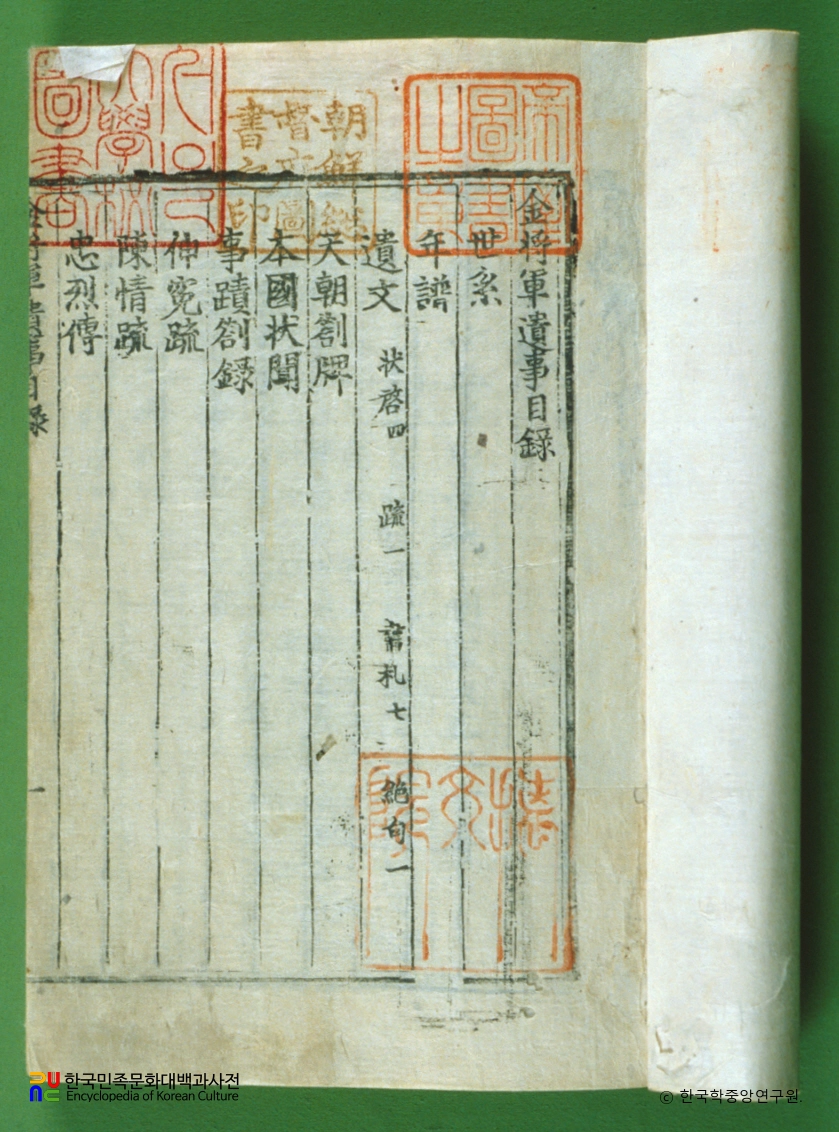 金将軍遺事目錄
世系
年譜
遺文 状啓四 疏一 書札七 絶句一
天朝劄牌
本國状聞
事蹟劄録
伸寃疏
陳情疏
忠烈傳
目錄
一
帝室圖書之章
朝鮮總督府圖書之印
學校圖書
한국민족문화대백과사전
Encyclopedia of Korean Culture
© 한국학중앙연구원.